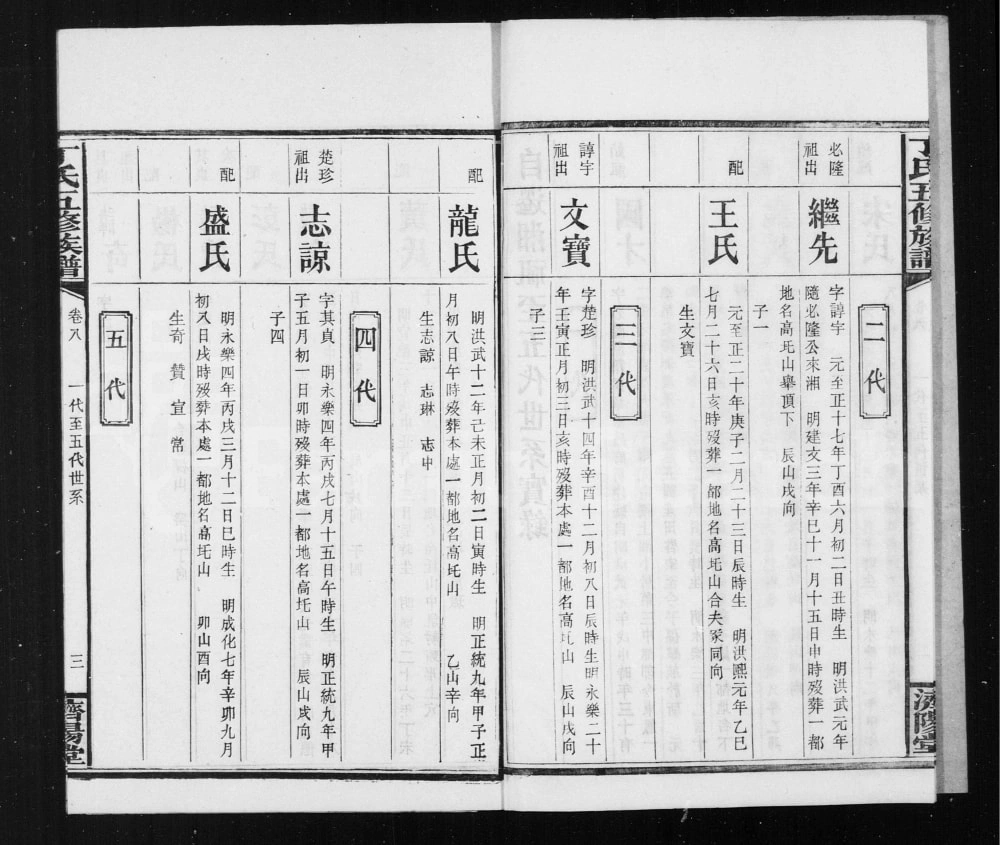 丁氏五修族譜
濟陽堂
二代
必隆祖出
繼先
字諄宇 元至正十七年丁酉六月初二日丑時生 明洪武元年
隨必隆公來湘 明建文三年辛巳十一月十五日申時歿葬一都
地名高圫山舉頂下 辰山戌向
子一
配
王氏
元至正二十年庚子二月二十三日辰時生 明洪熙元年乙巳
七月二十六日亥時歿葬一都地名高圫山合夫冢同向
生文寶
三代
諄宇祖出
文寶
字楚珍 明洪武十四年辛酉十二月初八日辰時生明永樂二十
年壬寅正月初三日亥時歿葬本處一都地名高圫山 辰山戌向
子三
配
龍氏
明洪武十二年己未正月初二日寅時生 明正統九年甲子正
月初八日午時歿葬本處一都地名高圫山 乙山辛向
生志諒 志琳 志中
四代
楚珍祖出
志諒
字其貞 明永樂四年丙戌七月十五日午時生 明正統九年甲
子五月初一日卯時歿葬本處一都地名高圫山 辰山戌向
子四
配
盛氏
明永樂四年丙戌三月十二日巳時生 明成化七年辛卯九月
初八日戌時歿葬本處一都地名高圫山 卯山酉向
生奇 贊 宣 常
五代
丁氏五修族譜
卷八
一代至五代世系
三
濟陽堂